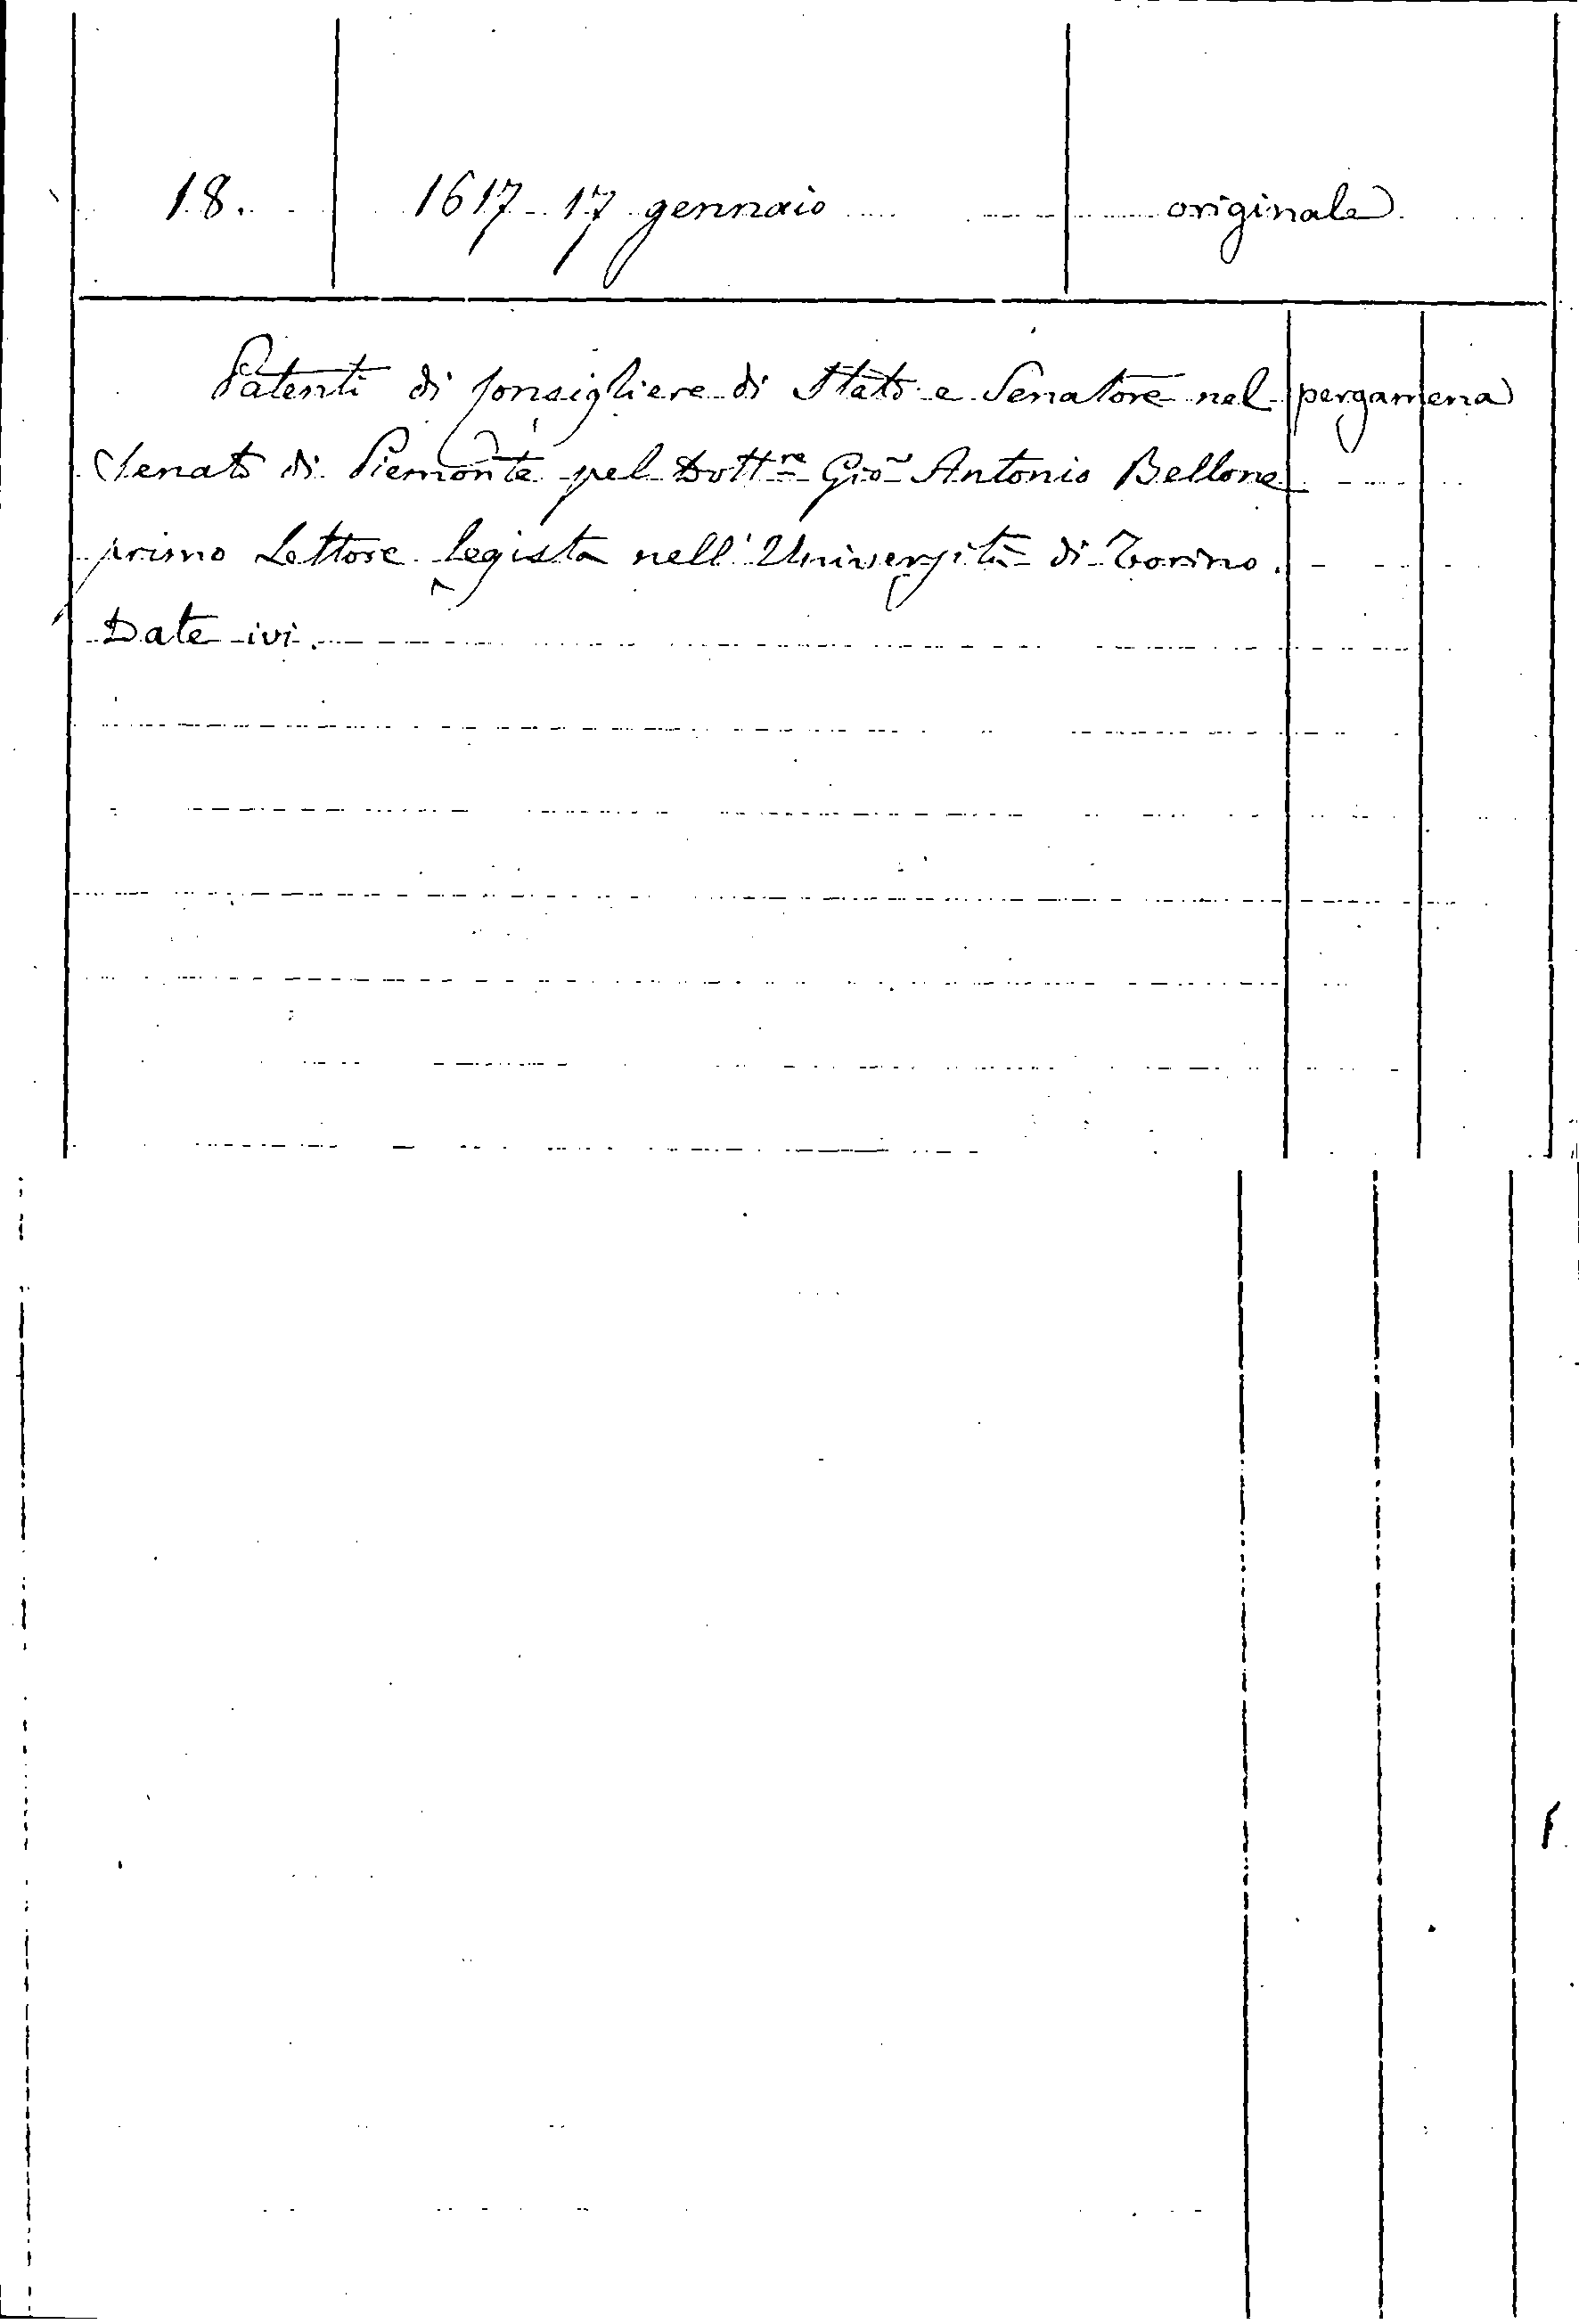 18. 1617 17 gennaio originale
Patenti di Consigliere di Stato e Senatore nel pergamena
Senato di Piemonte pel Dott.re Gio Antonio Bellone
primo Lettore legista nell'Università di Torino.
Date ivi.